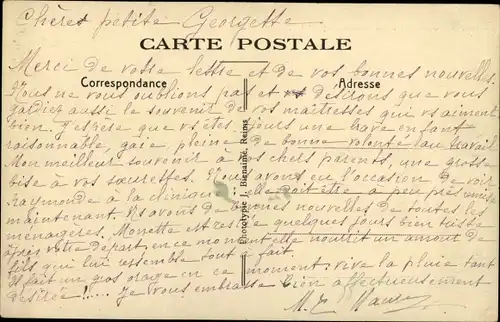 Chère petite Georgette
CARTE POSTALE
Correspondance
Adresse
Merci de votre lettre et de vos bonnes nouvelles.
Nous ne vous oublions pas et désirons que vous
gardiez aussi le souvenir de vos maîtresses qui vous aiment
bien. J'espère que vs êtes tjours une brave enfant
raisonnable, gaie pleine de bonne volonté au travail
Mon meilleur souvenir à vos chers parents, une grosse
bise à vos sœurettes. Nous avons eu l'occasion de voir
Raymonde à la clinique elle doit être à peu près
maintenant. Ns avons de bonnes nouvelles de toutes les
ménagères. Monette est restée quelques jours bien triste
après votre départ en ce moment elle nourrit un amour de
fils qui lui ressemble tout à fait
Il fait un gos orage en ce moment; vive la pluie tant
désirée..... Je vous embrasse bien affectueusement
M. E.
Phototypie J. Bienaimé, Reims